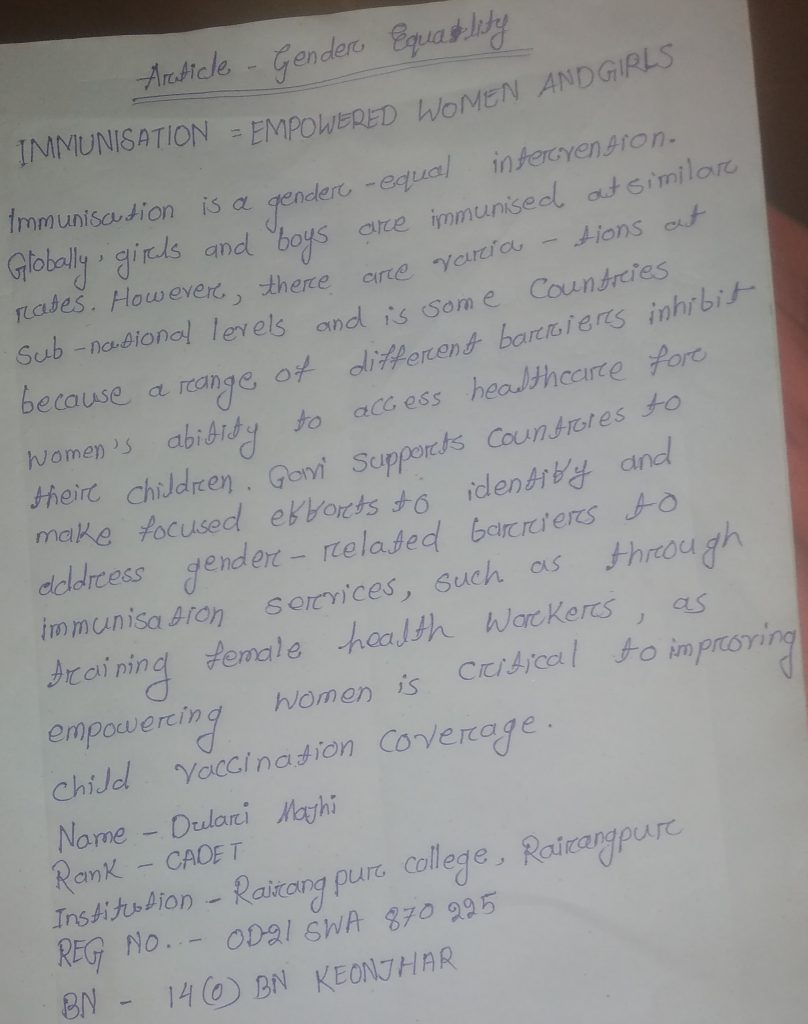 Article - Gender Equality
IMMUNISATION = EMPOWERED WOMEN AND GIRLS
Immunisation is a gender - equal intervention.
Globally, girls and boys are immunised at similar
rates. However, there are varia - tions at
Sub - national levels and is some Countries
because a range of different barriers inhibit
women's ability to access healthcare for
their children. Gavi Supports Countries to
make focused efforts to identify and
address gender - related barriers to
immunisation services, such as through
training female health workers, as
empowering women is critical to improving
child vaccination coverage.
Name - Dulari Majhi
Rank - CADET
Institution - Rairangpur college, Rairangpur
REG NO. - OD21 SWA 870 225
BN - 14 (O) BN KEONJHAR